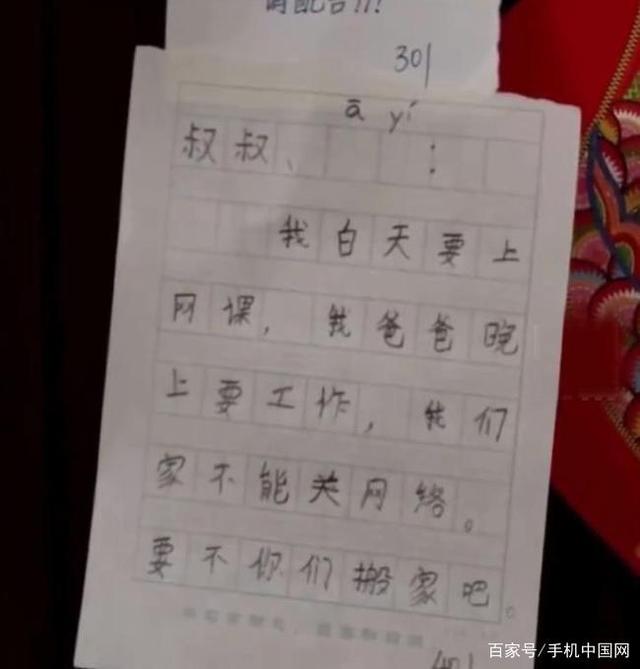 请配合!!!
301
ā yí
叔叔、 :
我白天要上
网课，我爸爸晚
上要工作，我们
家不能关网络。
要不你们搬家吧。
401
百家号/手机中国网